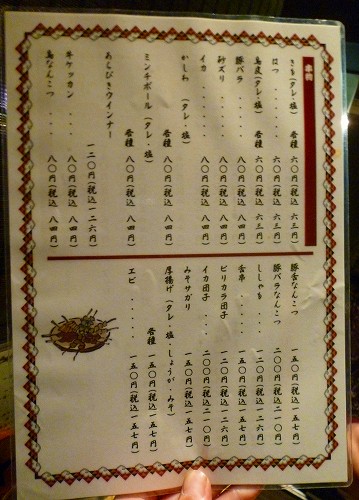 串物
きも(タレ・塩) 各種 六〇円(税込 六三円)
はつ ・・・・・ 六〇円(税込 六三円)
鳥皮(タレ・塩) 各種 六〇円(税込 六三円)
豚バラ ・・・・ 八〇円(税込 八四円)
砂ズリ ・・・・ 八〇円(税込 八四円)
イカ ・・・・・ 八〇円(税込 八四円)
かしわ (タレ・塩)
各種 八〇円(税込 八四円)
ミンチボール (タレ・塩)
各種 八〇円(税込 八四円)
あらびきウインナー
一二〇円(税込 一二六円)
牛ケッカン ・・ 八〇円(税込 八四円)
鳥なんこつ ・・・ 八〇円(税込 八四円)
豚舌なんこつ 一五〇円(税込 一五七円)
豚バラなんこつ 二〇〇円(税込 二一〇円)
ししゃも ・・・ 一二〇円(税込 一二六円)
舌串 ・・・・・ 一五〇円(税込 一五七円)
ピリカラ団子 一二〇円(税込 一二六円)
イカ団子 ・・・ 二〇〇円(税込 二一〇円)
みそサガリ 一五〇円(税込 一五七円)
厚揚げ (タレ・塩・しょうが・みそ)
各種 一五〇円(税込 一五七円)
エビ ・・・・・ 一五〇円(税込 一五七円)